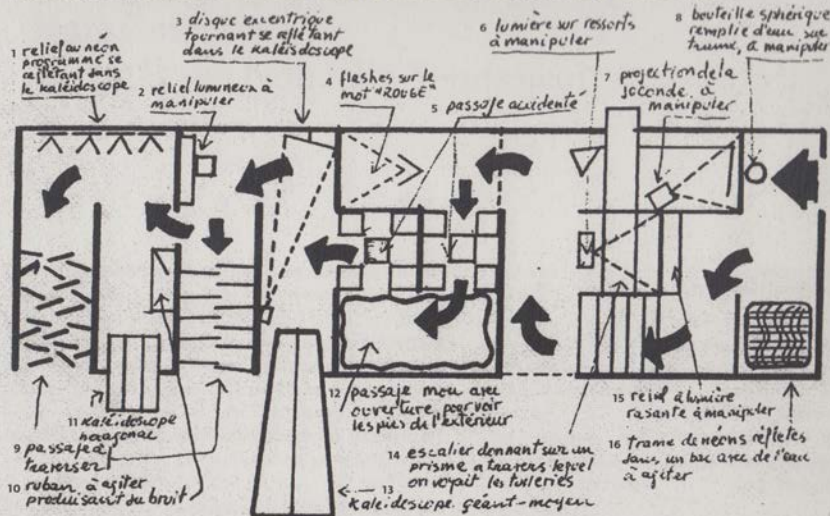 1 relief au néon
programmé se
reflétant dans
le kaléidoscope
2 relief lumineux à
manipuler
3 disque excentrique
tournant se reflétant
dans le kaléidoscope
4 flashes sur le
mot "ROUGE"
5 passage accidenté
6 lumière sur ressorts
à manipuler
7 projection de la
Joconde à
manipuler
8 bouteille sphérique
remplie d'eau sur
trame, à manipuler
9 passage à
traverser
10 ruban à agiter
produisant du bruit
11 Kaléidoscope
hexagonal
12 passage mou avec
ouverture pour voir
les pieds de l'extérieur
13
Kaléidoscope géant-moyen
14 escalier donnant sur un
prisme à travers lequel
on voyait les tuileries
15 relief à lumière
rasante à manipuler
16 trame de néons reflétés
dans un bac avec de l'eau
à agiter